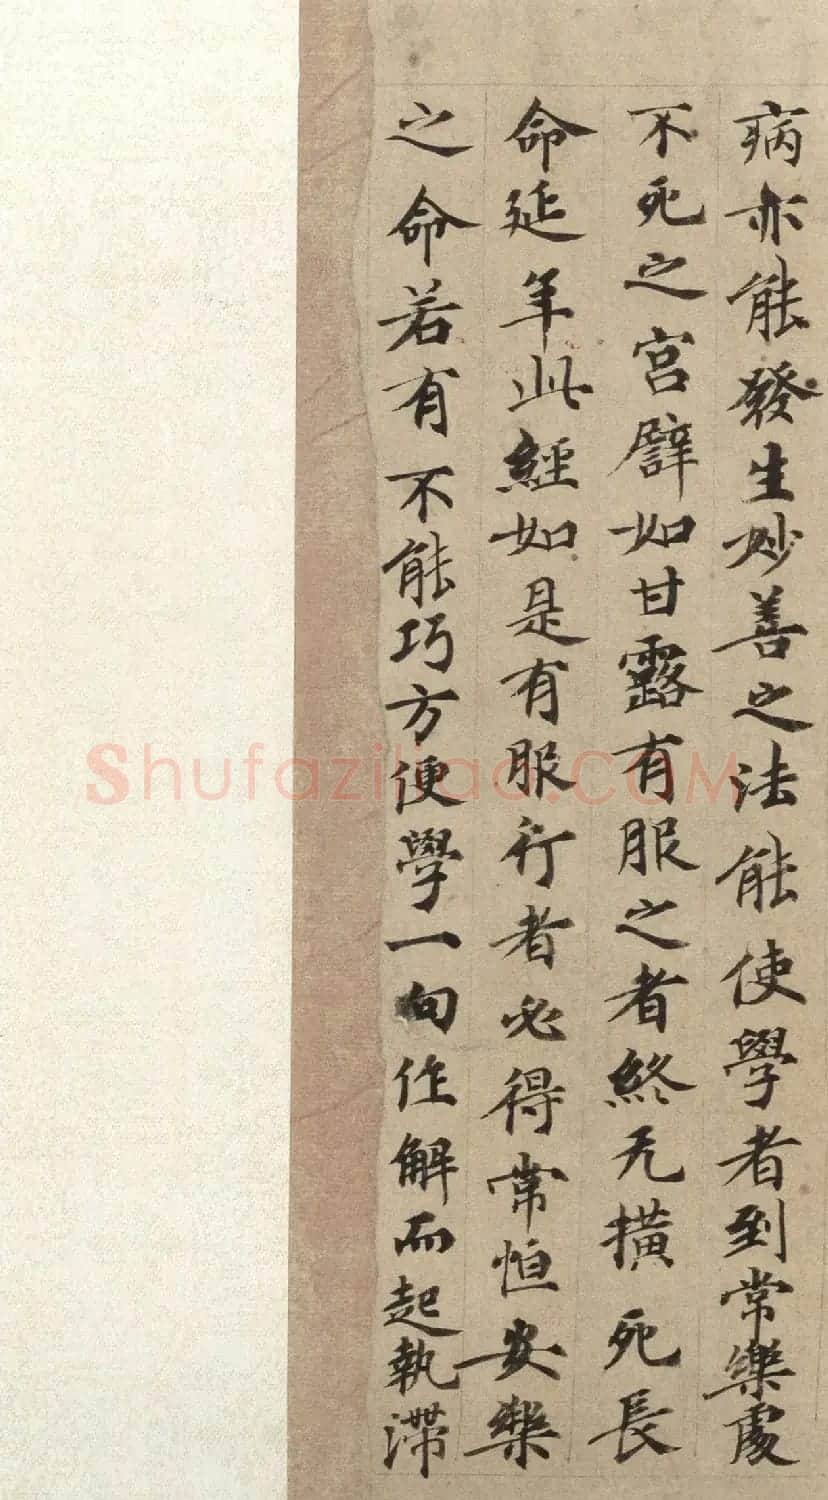 病亦能發生妙善之法能使學者到常樂處
不死之宮譬如甘露有服之者終无橫死長
命延年此經如是有服行者必得常恒安樂
之命若有不能巧方便學一句作解而起執滯
Shufaziliao.COM